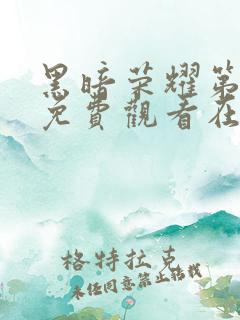 黑暗荣耀第
免費觀看在
格特拉克
未经同意禁止转载